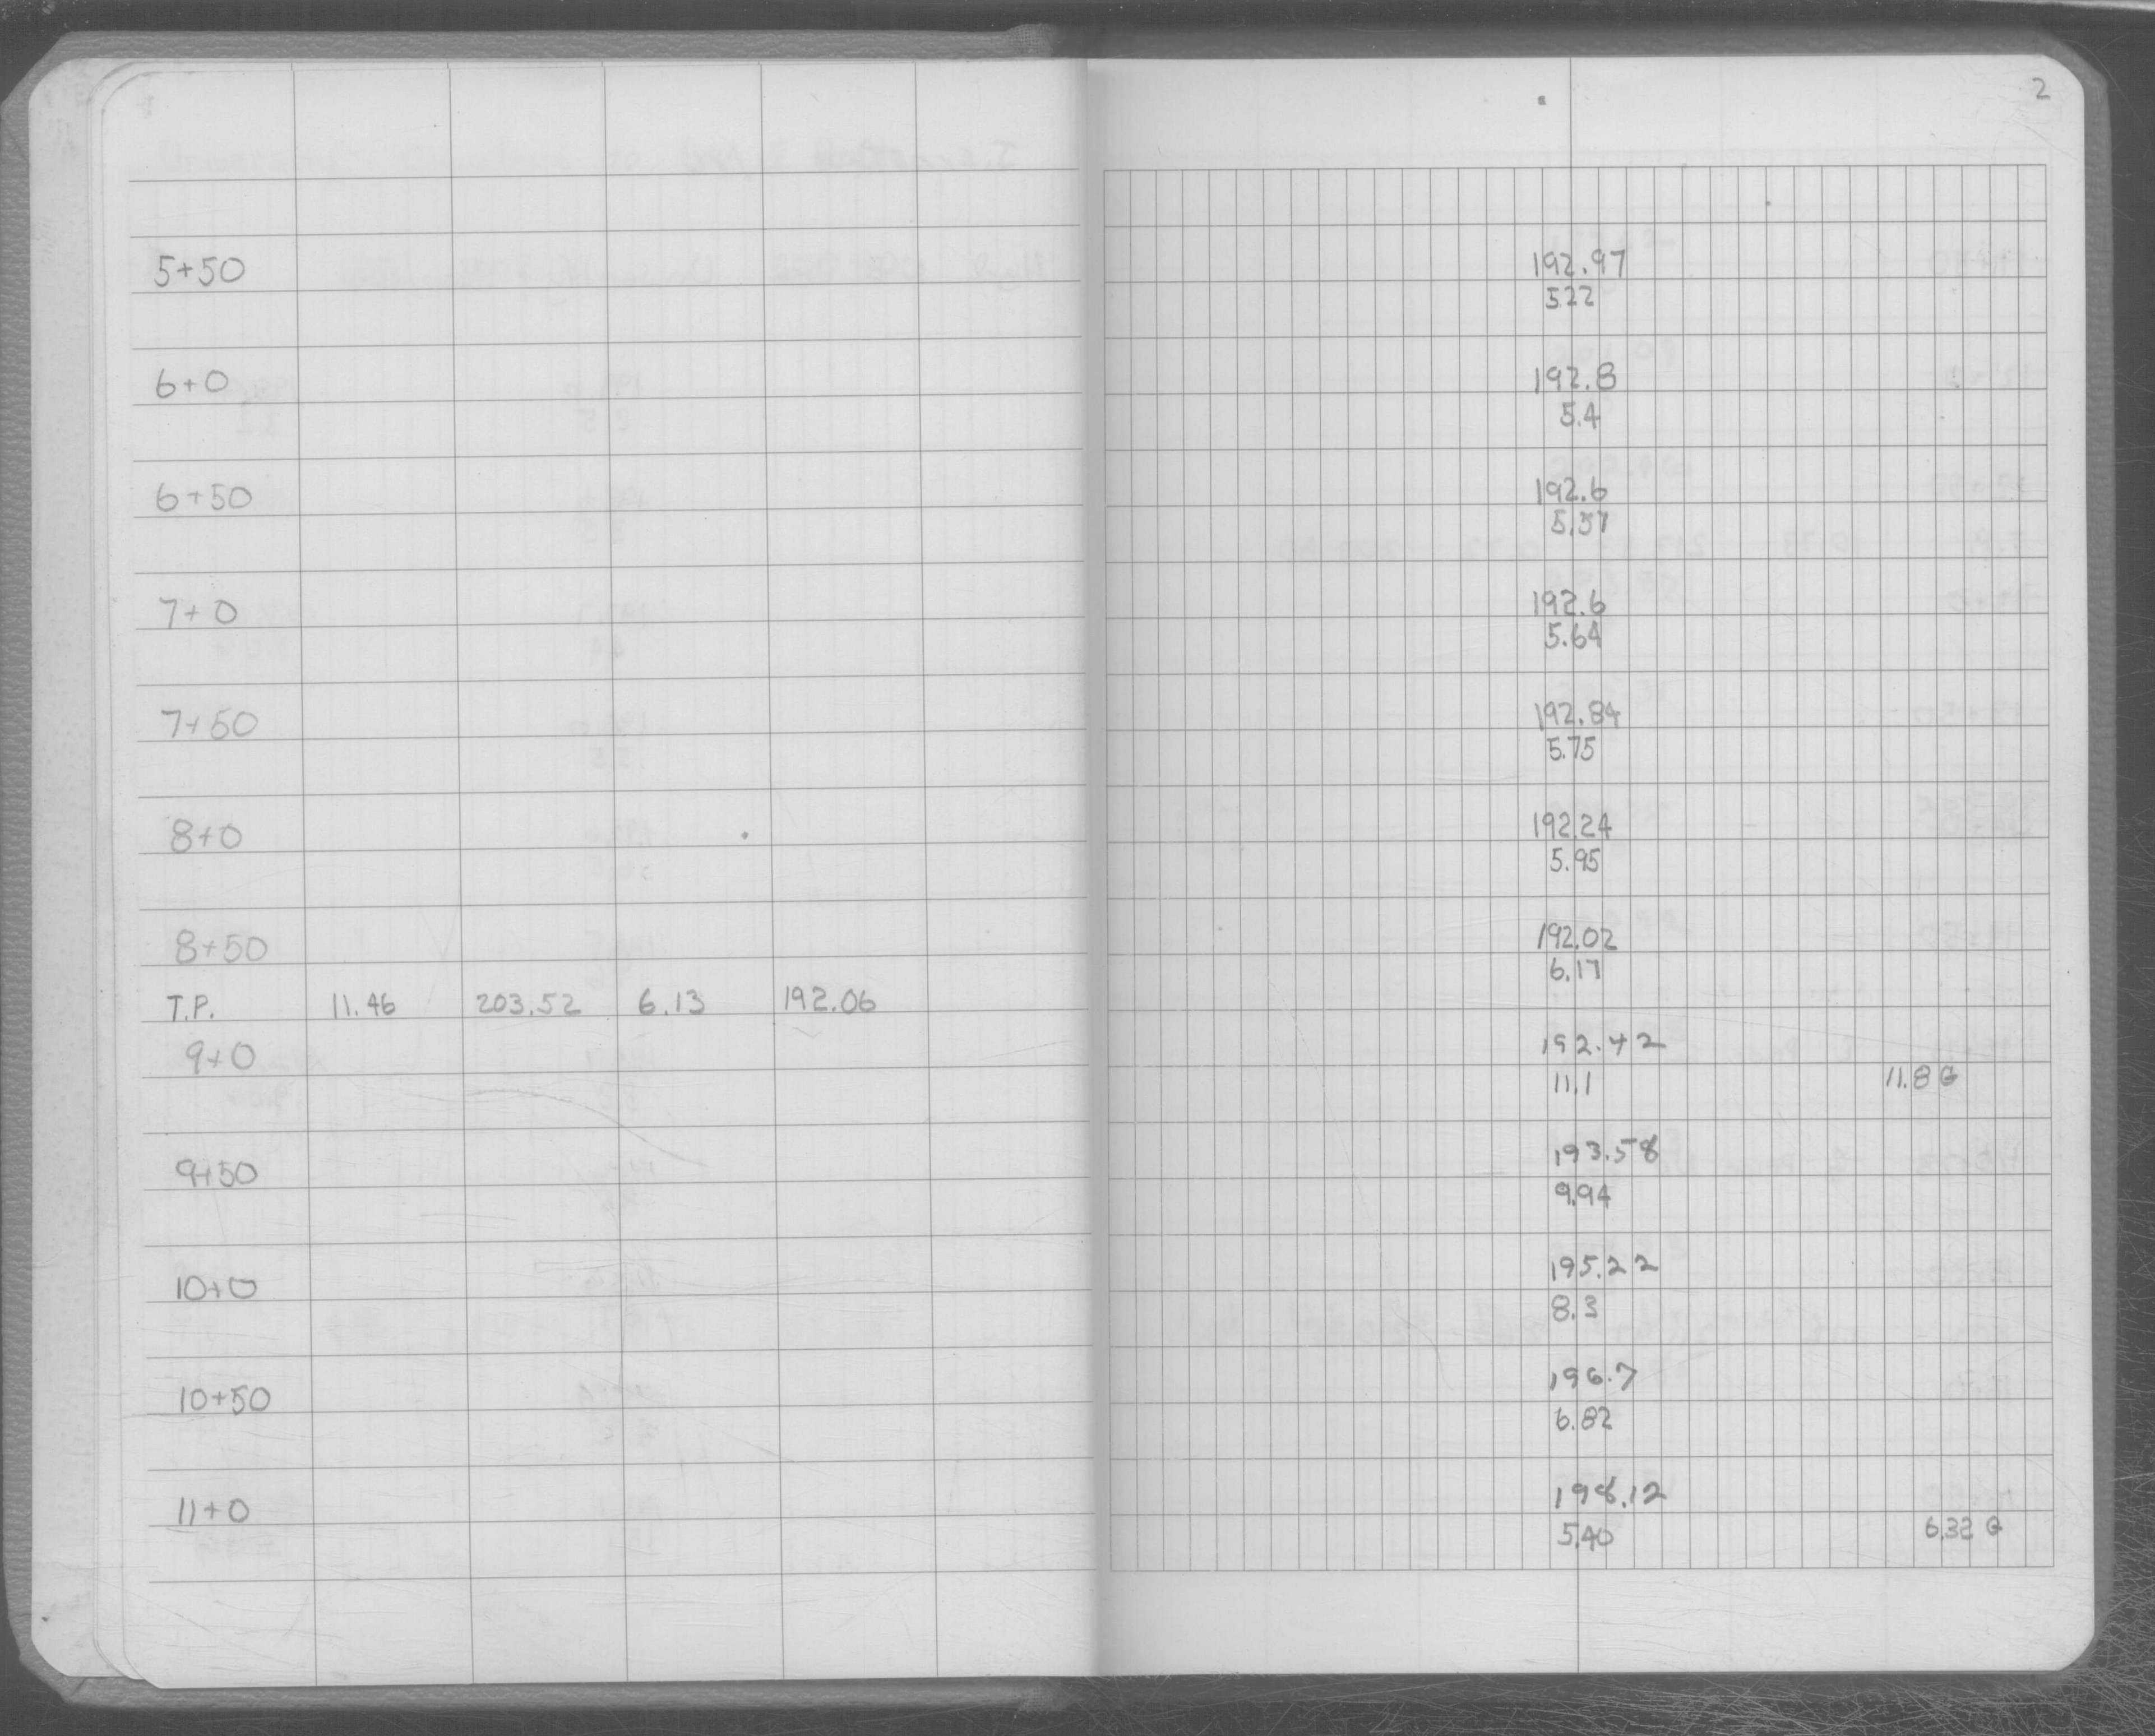 2
5+50 192.97
5.22
6+0 192.8
5.4
6+50 192.6
5.57
7+0 192.6
5.64
7+50 192.84
5.75
8+0 192.24
5.95
8+50 192.02
6.17
T.P. 11.46 203.52 6.13 192.06
9+0 192.42
11.1 11.8 G
9+50 193.58
9.94
10+0 195.22
8.3
10+50 196.7
6.82
11+0 198.12
5.40 6.32 G